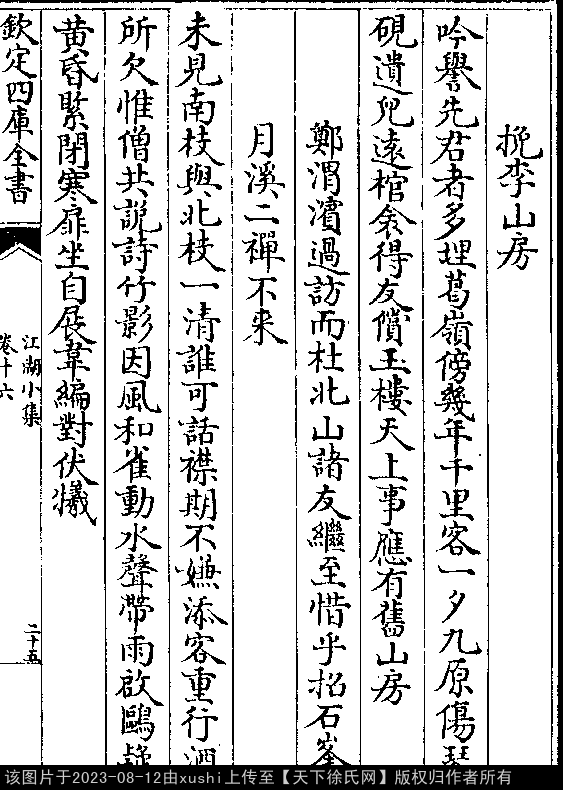 挽李山房
吟譽先君者多埋葛嶺傍幾年千里客一夕九原傷琴
硯遺兒逺棺衾得友償玉樓天上事應有舊山房
鄭渭濱過訪而杜北山諸友繼至惜乎招石峯
月溪二禪不來
未見南枝與北枝一清誰可話襟期不嫌添客重行酒
所欠惟僧共説詩竹影因風和雀動水聲帶雨啟鷗
黄昏緊閉寒扉坐自展韋編對伏犧
欽定四庫全書
江湖小集
卷十六
二十五
该图片于2023-08-12由xushi上传至【天下徐氏网】版权归作者所有